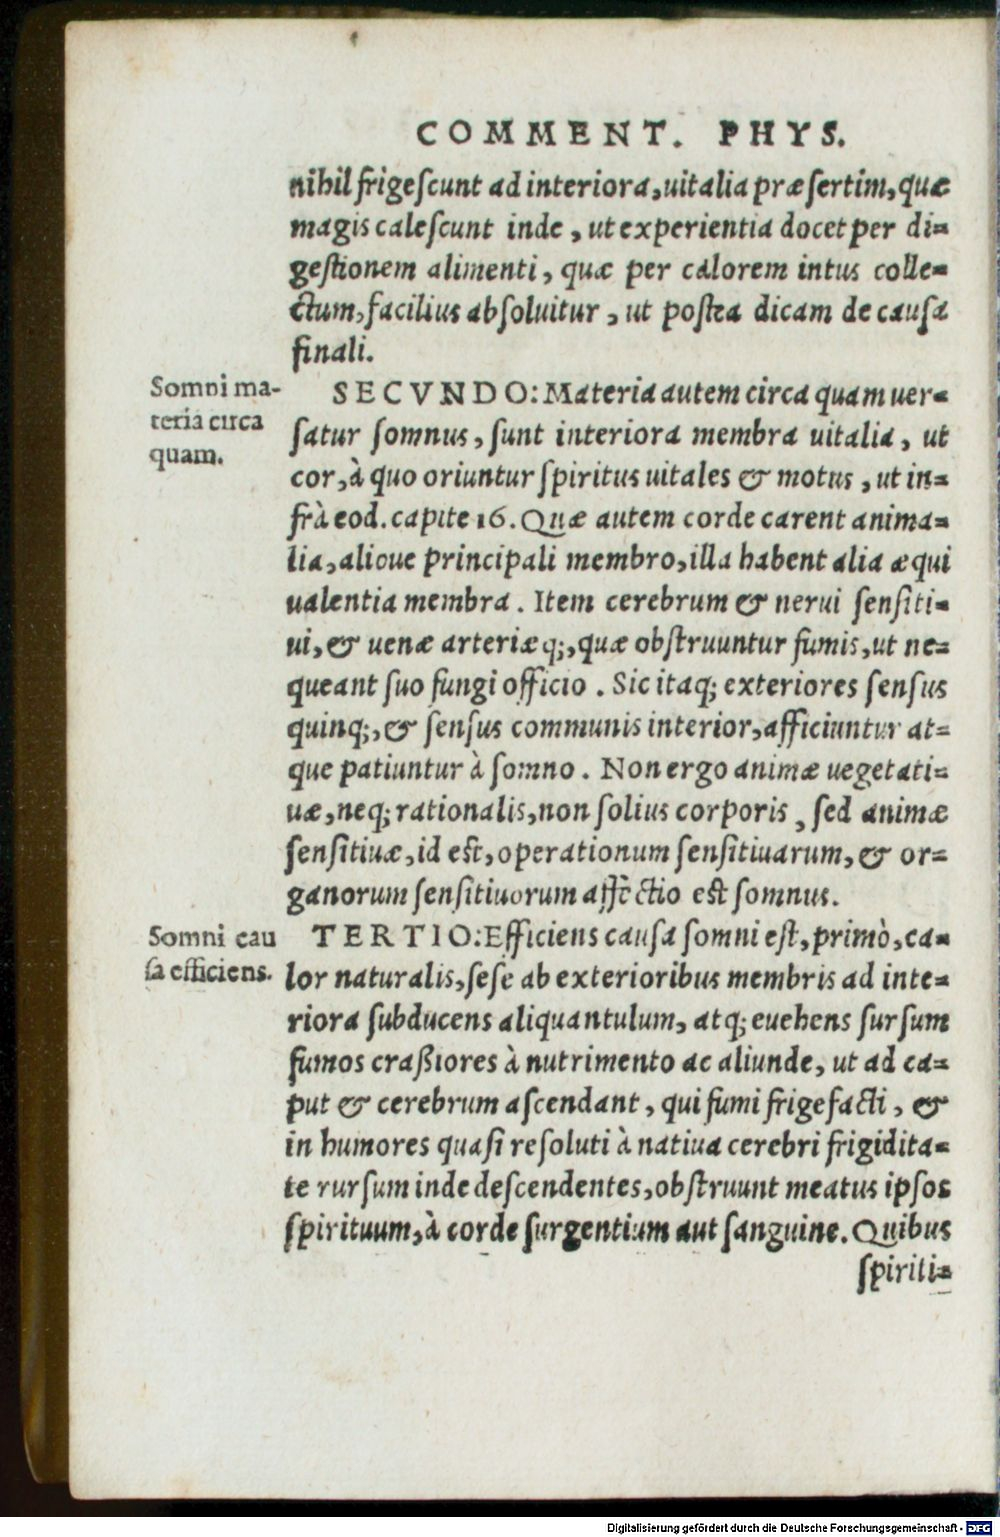 COMMENT. PHYS.
nihil frigeſcunt ad interiora, uitalia præſertim, quæ
magis caleſcunt inde, ut experientia docet per di-
geſtionem alimenti, quæ per calorem intus colle-
ctum, facilius abſoluitur, ut poſtea dicam de cauſa
finali.
Somni ma-
teria circa
quam.
SECVNDO: Materia autem circa quam uer-
ſatur ſomnus, ſunt interiora membra uitalia, ut
cor, à quo oriuntur ſpiritus uitales & motus, ut in-
frà eod. capite 16. Quæ autem corde carent anima-
lia, alioue principali membro, illa habent alia æqui
ualentia membra. Item cerebrum & nerui ſenſiti-
ui, & uenæ arteriæq;, quæ obſtruuntur fumis, ut ne-
queant ſuo fungi officio. Sic itaq; exteriores ſenſus
quinq;, & ſenſus communis interior, afficiuntur at-
que patiuntur à ſomno. Non ergo animæ uegetati-
uæ, neq; rationalis, non ſolius corporis, ſed animæ
ſenſitiuæ, id eſt, operationum ſenſitiuarum, & or-
ganorum ſenſitiuorum affectio eſt ſomnus.
Somni cau
ſa efficiens.
TERTIO: Efficiens cauſa ſomni eſt, primò, ca-
lor naturalis, ſeſe ab exterioribus membris ad inte-
riora ſubducens aliquantulum, atq; euehens ſurſum
fumos craßiores à nutrimento ac aliunde, ut ad ca-
put & cerebrum aſcendant, qui fumi frigefacti, &
in humores quaſi reſoluti à natiua cerebri frigidita-
te rurſum inde deſcendentes, obſtruunt meatus ipſos
ſpirituum, à corde ſurgentium aut ſanguine. Quibus
ſpiriti-
Digitalisierung gefördert durch die Deutsche Forschungsgemeinschaft - DFG